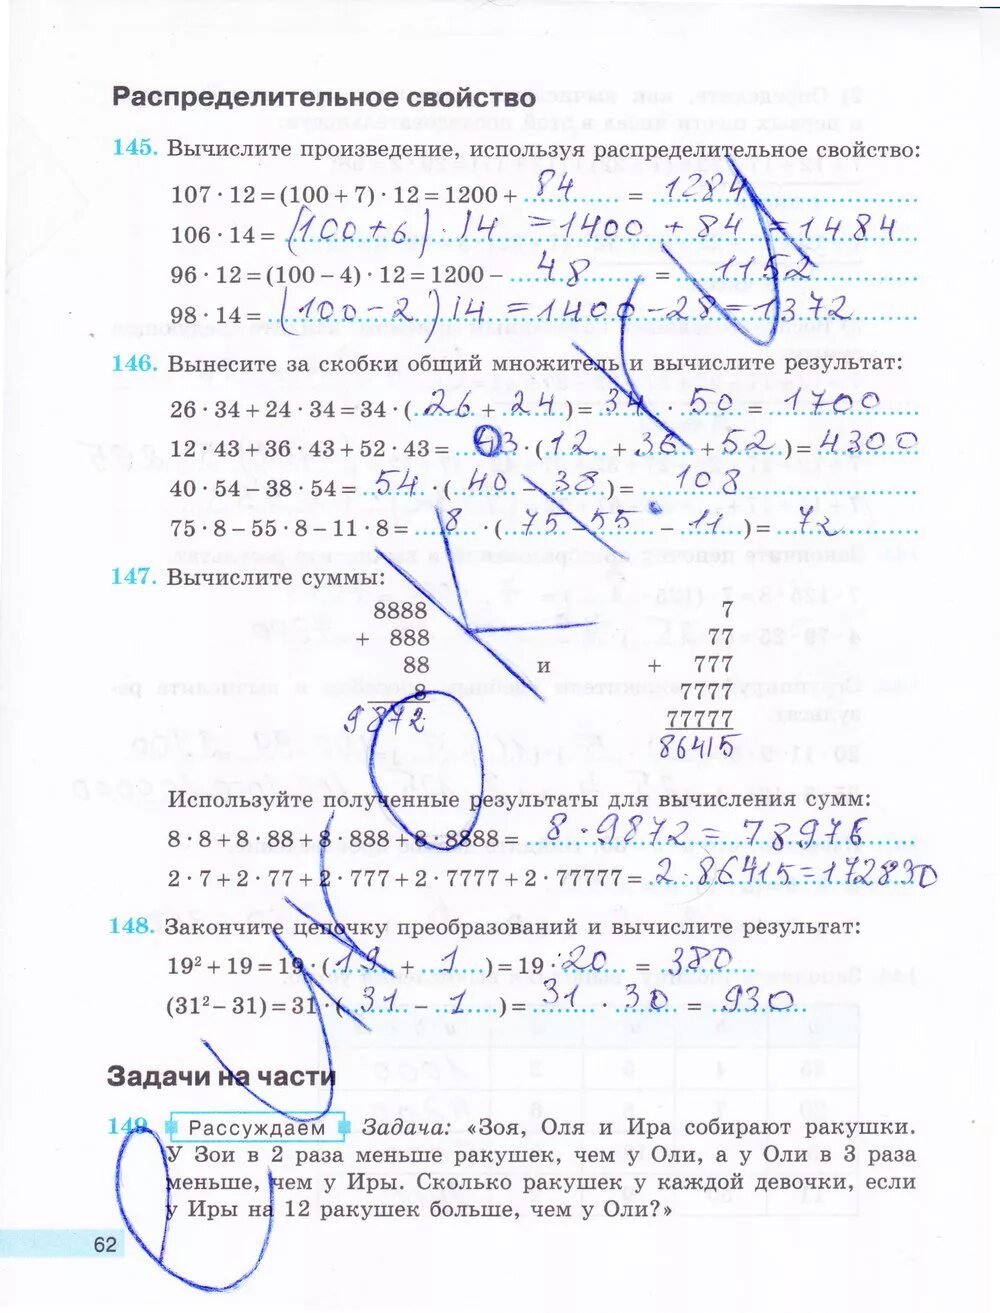 Распределительное свойство
145. Вычислите произведение, используя распределительное свойство:
107 · 12 = (100 + 7) · 12 = 1200 + 84 = 1284
106 · 14 = (100+6) · 14 = 1400 + 84 = 1484
96 · 12 = (100 – 4) · 12 = 1200 – 48 = 1152
98 · 14 = (100 - 2) 14 = 1400 - 28 = 1372
146. Вынесите за скобки общий множитель и вычислите результат:
26 · 34 + 24 · 34 = 34 · ( 26 + 24 ) = 34 · 50 = 1700
12 · 43 + 36 · 43 + 52 · 43 = 43 · ( 12 + 36 + 52 ) = 4300
40 · 54 – 38 · 54 = 54 · ( 40 – 38 ) = 108
75 · 8 – 55 · 8 – 11 · 8 = 8 · ( 75 – 55 – 11 ) = 72
147. Вычислите суммы:
8888 7
+ 888 77
88 и + 777
8 7777
9872 77777
86415
Используйте полученные результаты для вычисления сумм:
8 · 8 + 8 · 88 + 8 · 888 + 8 · 8888 = 8 · 9872 = 78976
2 · 7 + 2 · 77 + 2 · 777 + 2 · 7777 + 2 · 77777 = 2 · 86415 = 172830
148. Закончите цепочку преобразований и вычислите результат:
19² + 19 = 19 · ( 19 + 1 ) = 19 · 20 = 380
(31² – 31) = 31 · ( 31 – 1 ) = 31 · 30 = 930
Задачи на части
149. Рассуждаем Задача: «Зоя, Оля и Ира собирают ракушки.
У Зои в 2 раза меньше ракушек, чем у Оли, а у Оли в 3 раза
меньше, чем у Иры. Сколько ракушек у каждой девочки, если
у Иры на 12 ракушек больше, чем у Оли?»
62